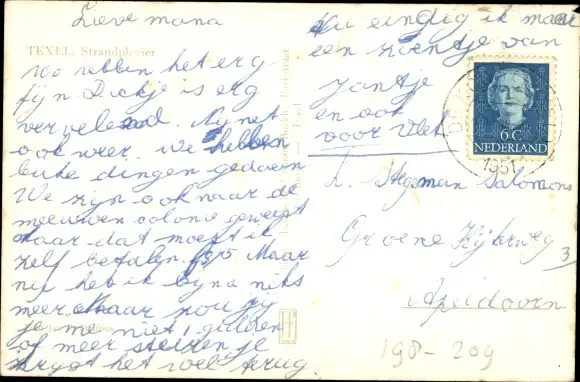 Lieve mama
TEXEL, Strandplevier
We hebben het erg
fijn Dickje is erg
vervelend. Nu net
ook weer. We hebben
leuke dingen gedaan
We zijn ook naar de
meeuwen colonie geweest
Maar dat moest ik
zelf betalen. f0,75 Maar
nu heb ik bijna niks
meer. Maar zou jij
je me niet 1 gulden
of meer sturen je
krijgt het wel terug.
Nu eindig ik maar
een zoentje van
Jantje
en ook
voor Vlek
6 C
NEDERLAND
DE KOOG
1951
Stegeman Salomons
Groene Zijberweg
3
Apeldoorn
198-209